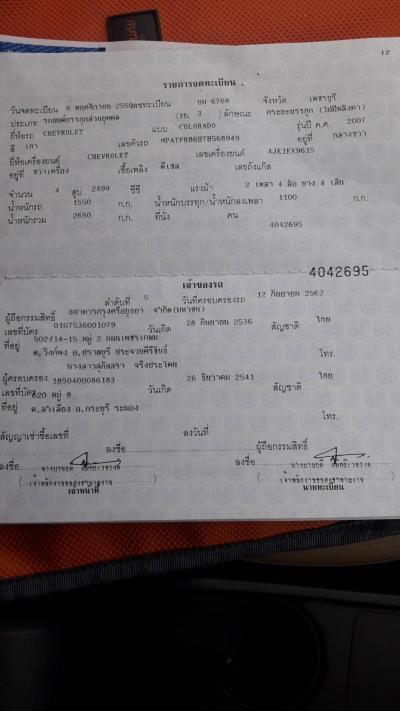 12
รายการจดทะเบียน
วันจดทะเบียน 6 พฤศจิกายน 2550 เลขทะเบียน บม 6768 จังหวัด เพชรบุรี
ประเภท รถยนต์บรรทุกส่วนบุคคล (รย. 3 ) ลักษณะ กระบะบรรทุก (ไม่มีหลังคา)
ยี่ห้อรถ CHEVROLET แบบ COLORADO รุ่นปี ค.ศ. 2007
สี เทา เลขตัวรถ อยู่ที่ กลางขวา
ยี่ห้อเครื่องยนต์ CHEVROLET เลขเครื่องยนต์ 4JK1EX9615
อยู่ที่ ขวาเครื่อง เชื้อเพลิง ดีเซล เลขถังแก๊ส
จำนวน 4 สูบ 2499 ซีซี แรงม้า 2 เพลา 4 ล้อ ยาง 4 เส้น
น้ำหนักรถ 1550 ก.ก. น้ำหนักบรรทุก/น้ำหนักลงเพลา 1100 ก.ก.
น้ำหนักรวม 2650 ก.ก. ที่นั่ง คน
4042695
4042695
เจ้าของรถ
ลำดับที่ 5 วันที่ครอบครองรถ 12 กันยายน 2562
ผู้ถือกรรมสิทธิ์ ธนาคารกรุงศรีอยุธยา จำกัด (มหาชน)
เลขที่บัตร 0107536001079 วันเกิด 28 กันยายน 2536 สัญชาติ ไทย
ที่อยู่ 502/14-15 หมู่ 2 ถนนเพชรเกษม
ต.วังก์พง อ.ปราณบุรี ประจวบคีรีขันธ์ โทร.
ผู้ครอบครอง นางสาวสุภัสสรา
เลขที่บัตร 1850400086183 วันเกิด 26 ธันวาคม 2541 สัญชาติ ไทย
ที่อยู่ 20 หมู่ 8
ต.ลำเลียง อ.กระบุรี ระนอง
โทร.
สัญญาเช่าซื้อเลขที่ ลงวันที่
ลงชื่อ ผู้ถือกรรมสิทธิ์
ลงชื่อ ลงชื่อ
เจ้าหน้าที่ นายทะเบียน